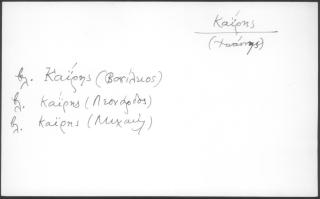 Καΐρης
(Ἰωάννης)
βλ. Καΐρης (Βασίλειος)
βλ. Καΐρης (Λεονάρδος)
βλ. Καΐρης (Μιχαήλ)